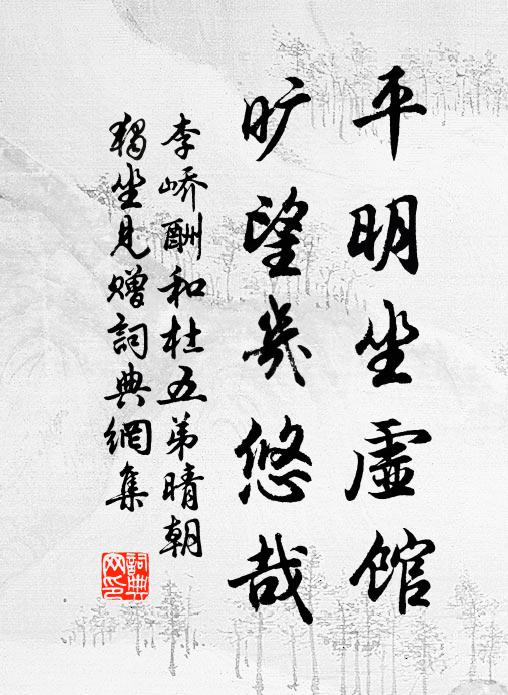 平明坐虚馆
旷望几悠哉
李峤酬和杜五弟晴朝
独坐见赠词典網集
詞典网印